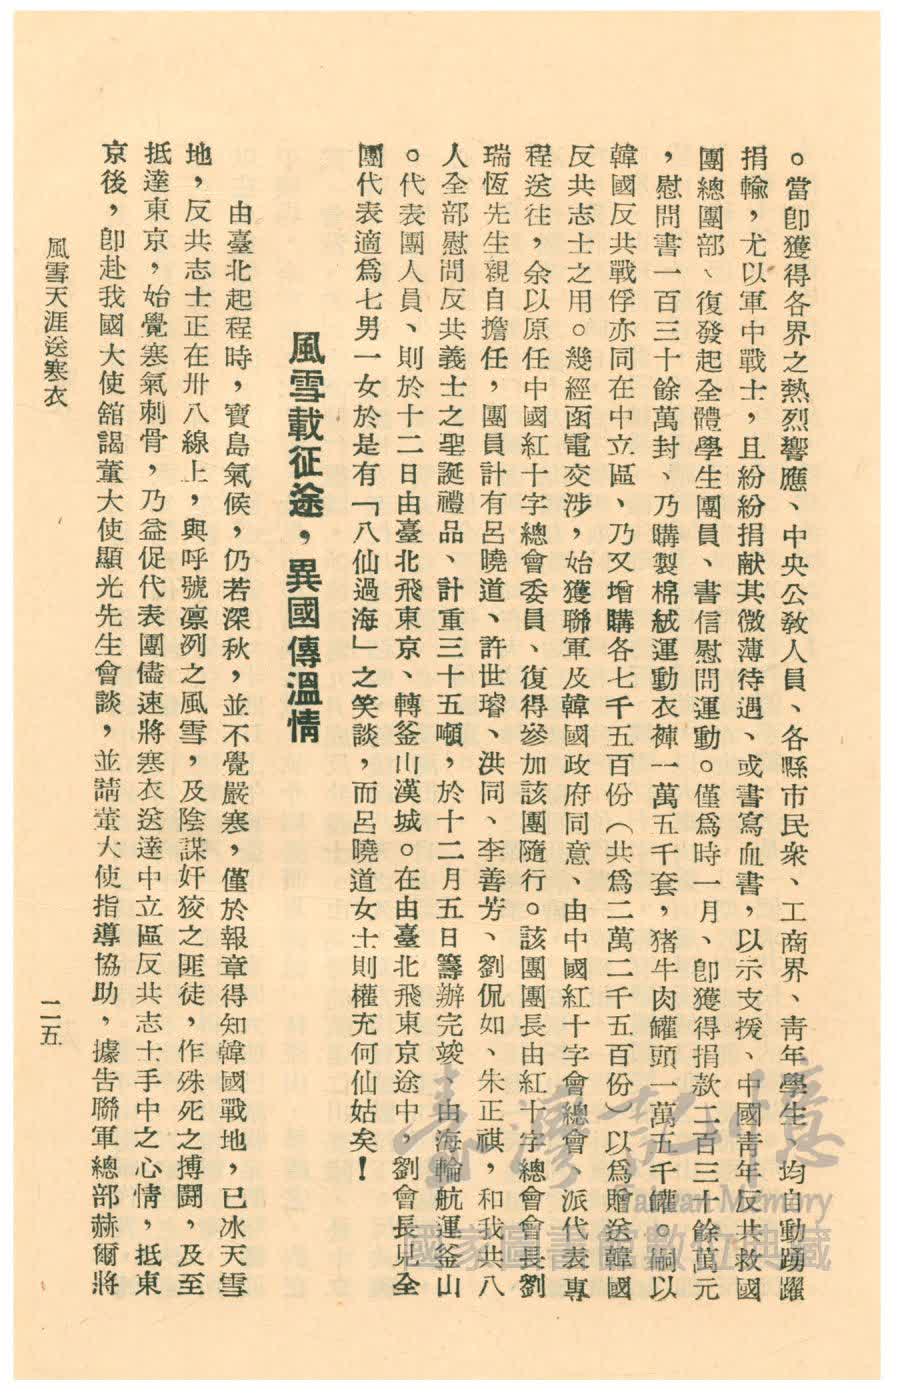 。當卽獲得各界之熱烈響應、中央公敎人員、各縣市民衆、工商界、靑年學生、均自動踴躍
捐輸，尤以軍中戰士，且紛紛捐献其微薄待遇、或書寫血書，以示支援、中國靑年反共救國
團總團部、復發起全體學生團員、書信慰問運動。僅爲時一月、卽獲得捐款二百三十餘萬元
，慰問書一百三十餘萬封、乃購製棉絨運動衣褲一萬五千套，猪牛肉罐頭一萬五千罐。嗣以
韓國反共戰俘亦同在中立區、乃又增購各七千五百份（共爲二萬二千五百份）以爲贈送韓國
反共志士之用。幾經函電交涉，始獲聯軍及韓國政府同意、由中國紅十字會總會、派代表專
程送往，余以原任中國紅十字總會委員、復得參加該團隨行。該團團長由紅十字總會會長劉
瑞恆先生親自擔任，團員計有呂曉道、許世璿、洪同、李善芳、劉侃如、朱正祺，和我共八
人全部慰問反共義士之聖誕禮品、計重三十五噸，於十二月五日籌辦完竣、由海輪航運釜山
。代表團人員、則於十二日由臺北飛東京、轉釜山漢城。在由臺北飛東京途中，劉會長見全
團代表適爲七男一女於是有「八仙過海」之笑談，而呂曉道女士則權充何仙姑矣！
風雪載征途，異國傳溫情
由臺北起程時，寶島氣候，仍若深秋，並不覺嚴寒，僅於報章得知韓國戰地，已冰天雪
地，反共志士正在卅八線上，與呼號凛冽之風雪，及陰謀奸狡之匪徒，作殊死之搏鬪，及至
抵達東京，始覺寒氣刺骨，乃益促代表團儘速將寒衣送達中立區反共志士手中之心情，抵東
京後，卽赴我國大使舘謁董大使顯光先生會談，並請董大使指導協助，據告聯軍總部赫爾將
風雪天涯送寒衣
二五
臺灣記憶
Taiwan Memory
國家圖書館數位典藏